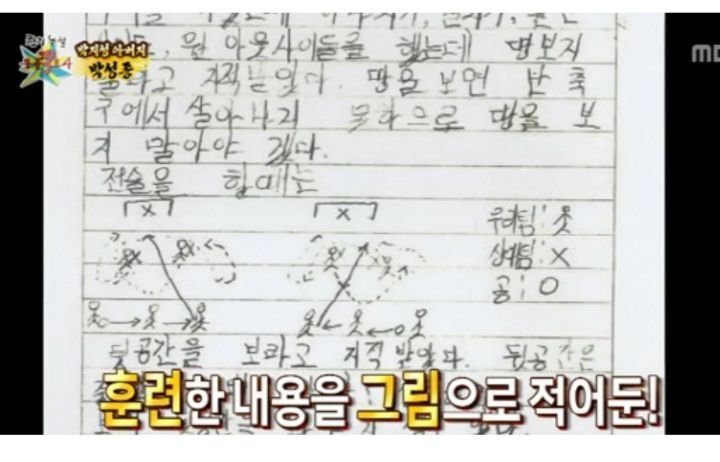 박지성 아버지
박성종
MBC
원 아웃사이드를 했는데 땅보지
말라고 지적받았다. 땅을 보면 난 축
구에서 살아나지 못하므로 땅을 보
지 말아야 겠다.
전술을 할때는
X X
우리팀:
상대팀: X
공: O
뒷공간을 보라고 지적 받았다. 뒷공간은
훈련한 내용을 그림으로 적어둔!